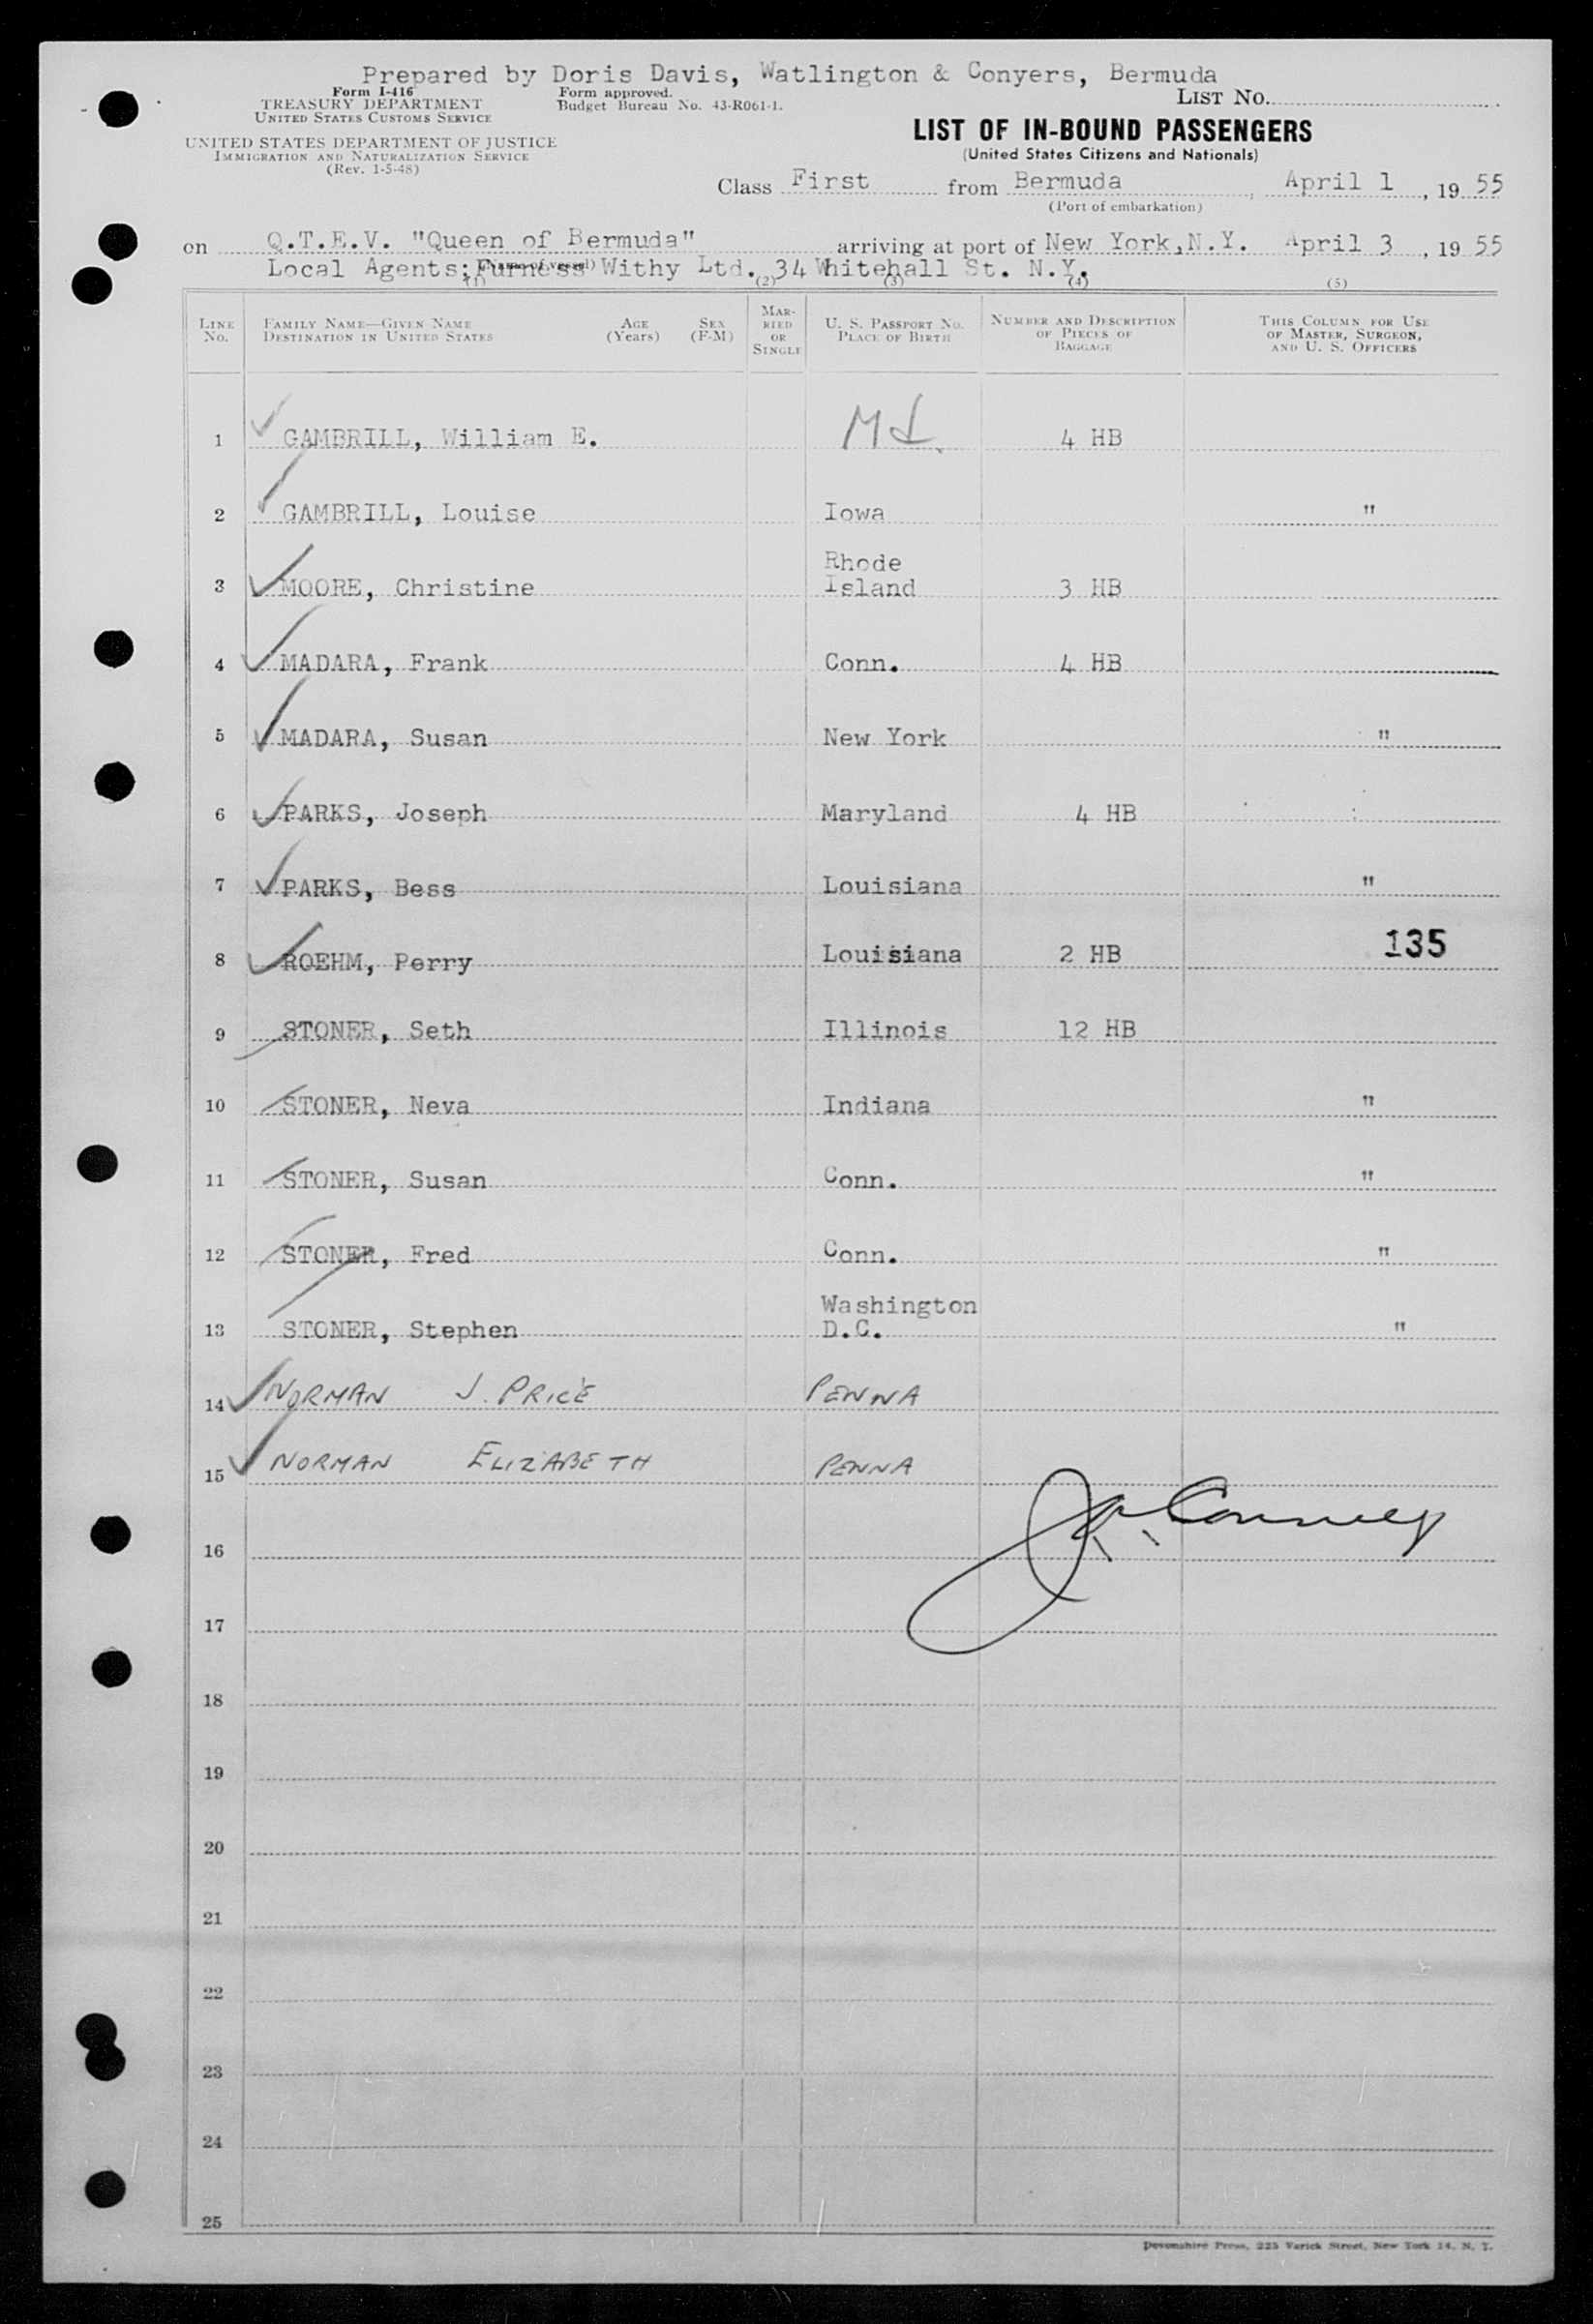 Prepared by Doris Davis, Watlington & Conyers, Bermuda
Form I-416
TREASURY DEPARTMENT
UNITED STATES CUSTOMS SERVICE
UNITED STATES DEPARTMENT OF JUSTICE
IMMIGRATION AND NATURALIZATION SERVICE
(Rev. 1-5-48)
Form approved.
Budget Bureau No. 43-R061-1.
LIST NO.
LIST OF IN-BOUND PASSENGERS
(United States Citizens and Nationals)
Class First from Bermuda, April 1, 19 55
(Port of embarkation)
on Q.T.E.V. "Queen of Bermuda" arriving at port of New York, N.Y. April 3, 19 55
(Name of vessel)
Local Agents: Furness Withy Ltd. 34 Whitehall St. N.Y.
(1) (2) (3) (4) (5)
LINE NO. FAMILY NAME—GIVEN NAME DESTINATION IN UNITED STATES AGE (Years) SEX (F-M) MARRIED OR SINGLE U. S. PASSPORT NO. PLACE OF BIRTH NUMBER AND DESCRIPTION OF PIECES OF BAGGAGE THIS COLUMN FOR USE OF MASTER, SURGEON, AND U. S. OFFICERS
1 GAMBRILL, William E. Md. 4 HB
2 GAMBRILL, Louise Iowa "
3 MOORE, Christine Rhode Island 3 HB
4 MADARA, Frank Conn. 4 HB
5 MADARA, Susan New York "
6 PARKS, Joseph Maryland 4 HB
7 PARKS, Bess Louisiana "
8 ROEHM, Perry Louisiana 2 HB 135
9 STONER, Seth Illinois 12 HB
10 STONER, Neva Indiana "
11 STONER, Susan Conn. "
12 STONER, Fred Conn. "
13 STONER, Stephen Washington D.C. "
14 NORMAN J. PRICE PENNA
15 NORMAN ELIZABETH PENNA
16
17
18
19
20
21
22
23
24
25
Devonshire Press, 225 Varick Street, New York 14, N. Y.